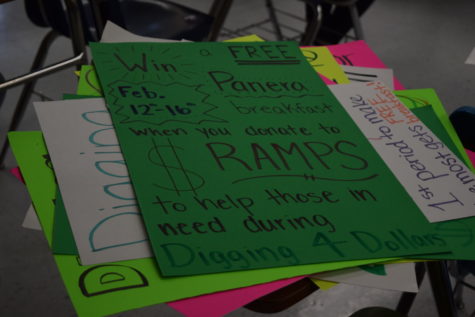 Win a FREE
Panera
Feb.
12th-16th
breakfast
when you donate to
$ RAMPS
to help those in
need during
Digging 4 Dollars
1st period to make
most gets FREE
breakfast!
Digging
D